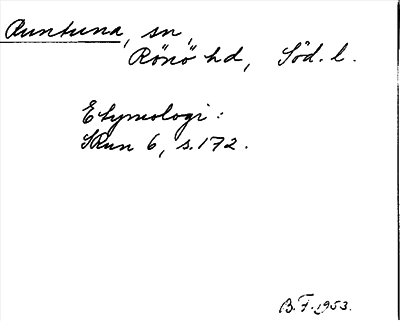 Runtuna, sn,
Rönö hd, Söd. l.
Etymologi:
SRun 6, s. 172.
B. F. 1953.